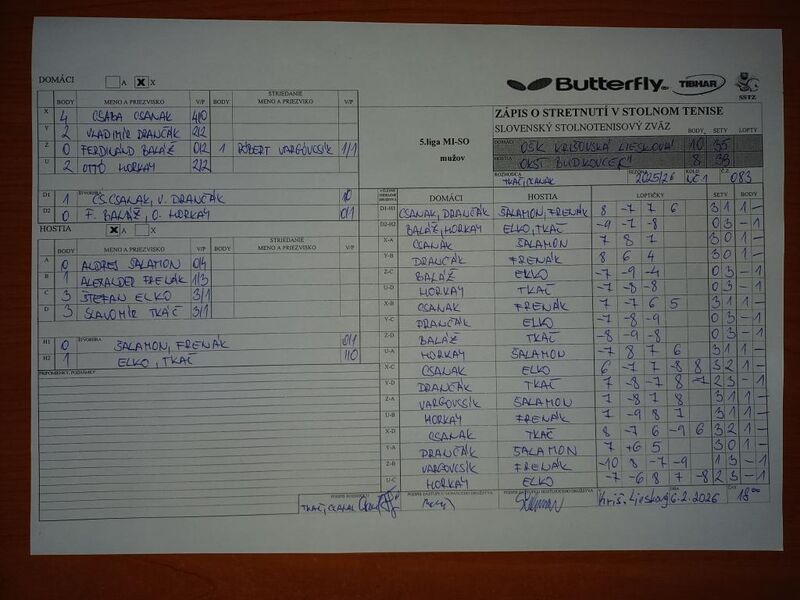 DOMÁCI A X X
Butterfly TIBHAR SSTZ
BODY MENO A PRIEZVISKO V/P BODY STRIEDANIE MENO A PRIEZVISKO V/P
X 4 CSABA CSANAK 4/0
Y 2 VLADIMÍR DRANČÁK 2/2
Z 0 FERDINAND BALÁŽ 0/2 1 RÓBERT VARGOVCSÍK 1/1
U 2 OTTO HORKAY 2/2
D1 1 ŠTVORHRA CS.CSANAK, V. DRANČÁK 1/0
D2 0 F. BALÁŽ, O. HORKAY 0/1
HOSTIA A X X
BODY MENO A PRIEZVISKO V/P BODY STRIEDANIE MENO A PRIEZVISKO V/P
A 0 ANDREJ SALAMON 0/4
B 1 ALEXANDER FRENÁK 1/3
C 3 ŠTEFAN ELKO 3/1
D 3 SLAVOMÍR TKÁČ 3/1
H1 0 ŠTVORHRA SALAMON, FRENÁK 0/1
H2 1 ELKO, TKÁČ 1/0
PRIPOMIENKY, POZNÁMKY
ZÁPIS O STRETNUTÍ V STOLNOM TENISE
SLOVENSKÝ STOLNOTENISOVÝ ZVÄZ BODY SETY LOPTY
5.liga MI-SO
mužov
DOMÁCI OŠK KRIŠOVSKÁ LIESKOVÁ 10 35
HOSTIA OKST BUDKOVCE "B" 8 33
ROZHODCA TKÁČ, CSANAK SEZÓNA 2025/26 KOLO Č.Z. 083
DOMÁCI HOSTIA LOPTIČKY SETY BODY
D1-H1 CSANAK, DRANČÁK SALAMON, FRENÁK 8 -7 7 6 3 1 1 -
D2-H2 BALÁŽ, HORKAY ELKO, TKÁČ -9 -7 -8 0 3 - 1
X-A CSANAK SALAMON 7 8 7 3 0 1 -
Y-B DRANČÁK FRENÁK 8 6 4 3 0 1 -
Z-C BALÁŽ ELKO -7 -9 -4 0 3 - 1
U-D HORKAY TKÁČ -7 -8 -8 0 3 - 1
X-B CSANAK FRENÁK 7 -7 6 5 3 1 1 -
Y-C DRANČÁK ELKO -7 -8 -9 0 3 - 1
Z-D BALÁŽ TKÁČ -8 -9 -8 0 3 - 1
U-A HORKAY SALAMON -7 8 7 6 3 1 1 -
X-C CSANAK ELKO 6 -7 7 -8 8 3 2 1 -
Y-D DRANČÁK TKÁČ 7 -8 -7 8 -7 2 3 - 1
Z-A VARGOVCSÍK SALAMON 7 -8 7 8 3 1 1 -
U-B HORKAY FRENÁK 7 -9 8 7 3 1 1 -
X-D CSANAK TKÁČ 8 -7 6 -9 6 3 2 1 -
Y-A DRANČÁK SALAMON 7 6 5 3 0 1 -
Z-B VARGOVCSÍK FRENÁK -10 8 -7 -9 1 3 - 1
U-C HORKAY ELKO -7 -6 8 7 -8 2 3 - 1
PODPIS ROZHODCU TKÁČ, CSANAK
PODPIS ZÁSTUPCU DOMÁCEHO DRUŽSTVA
Kriš. Liesková 6.2.2026 18⁰⁰